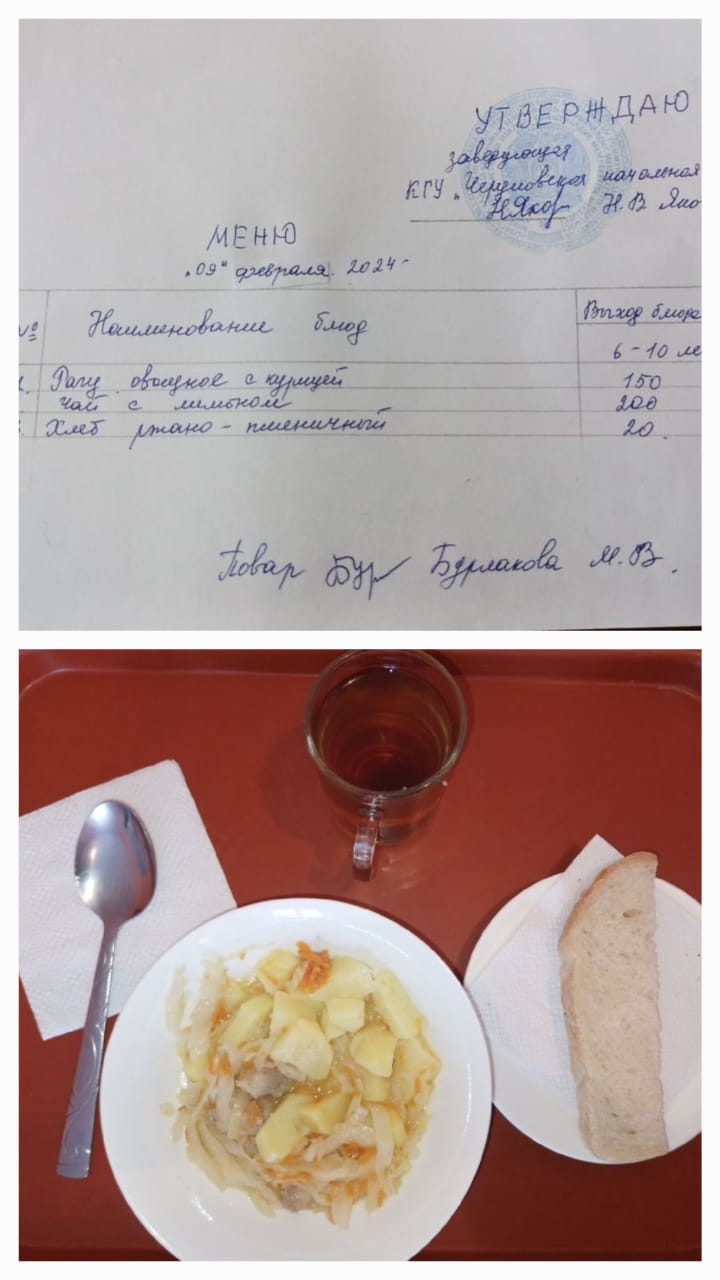 УТВЕРЖДАЮ
заведующая
КГУ "Чердоякская начальная
Н.В. Яко
МЕНЮ
"09" февраля 2024-
№ Наименование блюд Выход блюда
6-10 ле
Рагу овощное с курицей 150
Чай с лимоном 200
Хлеб ржано-пшеничный 20.
Повар Бур Бурлакова М.В.